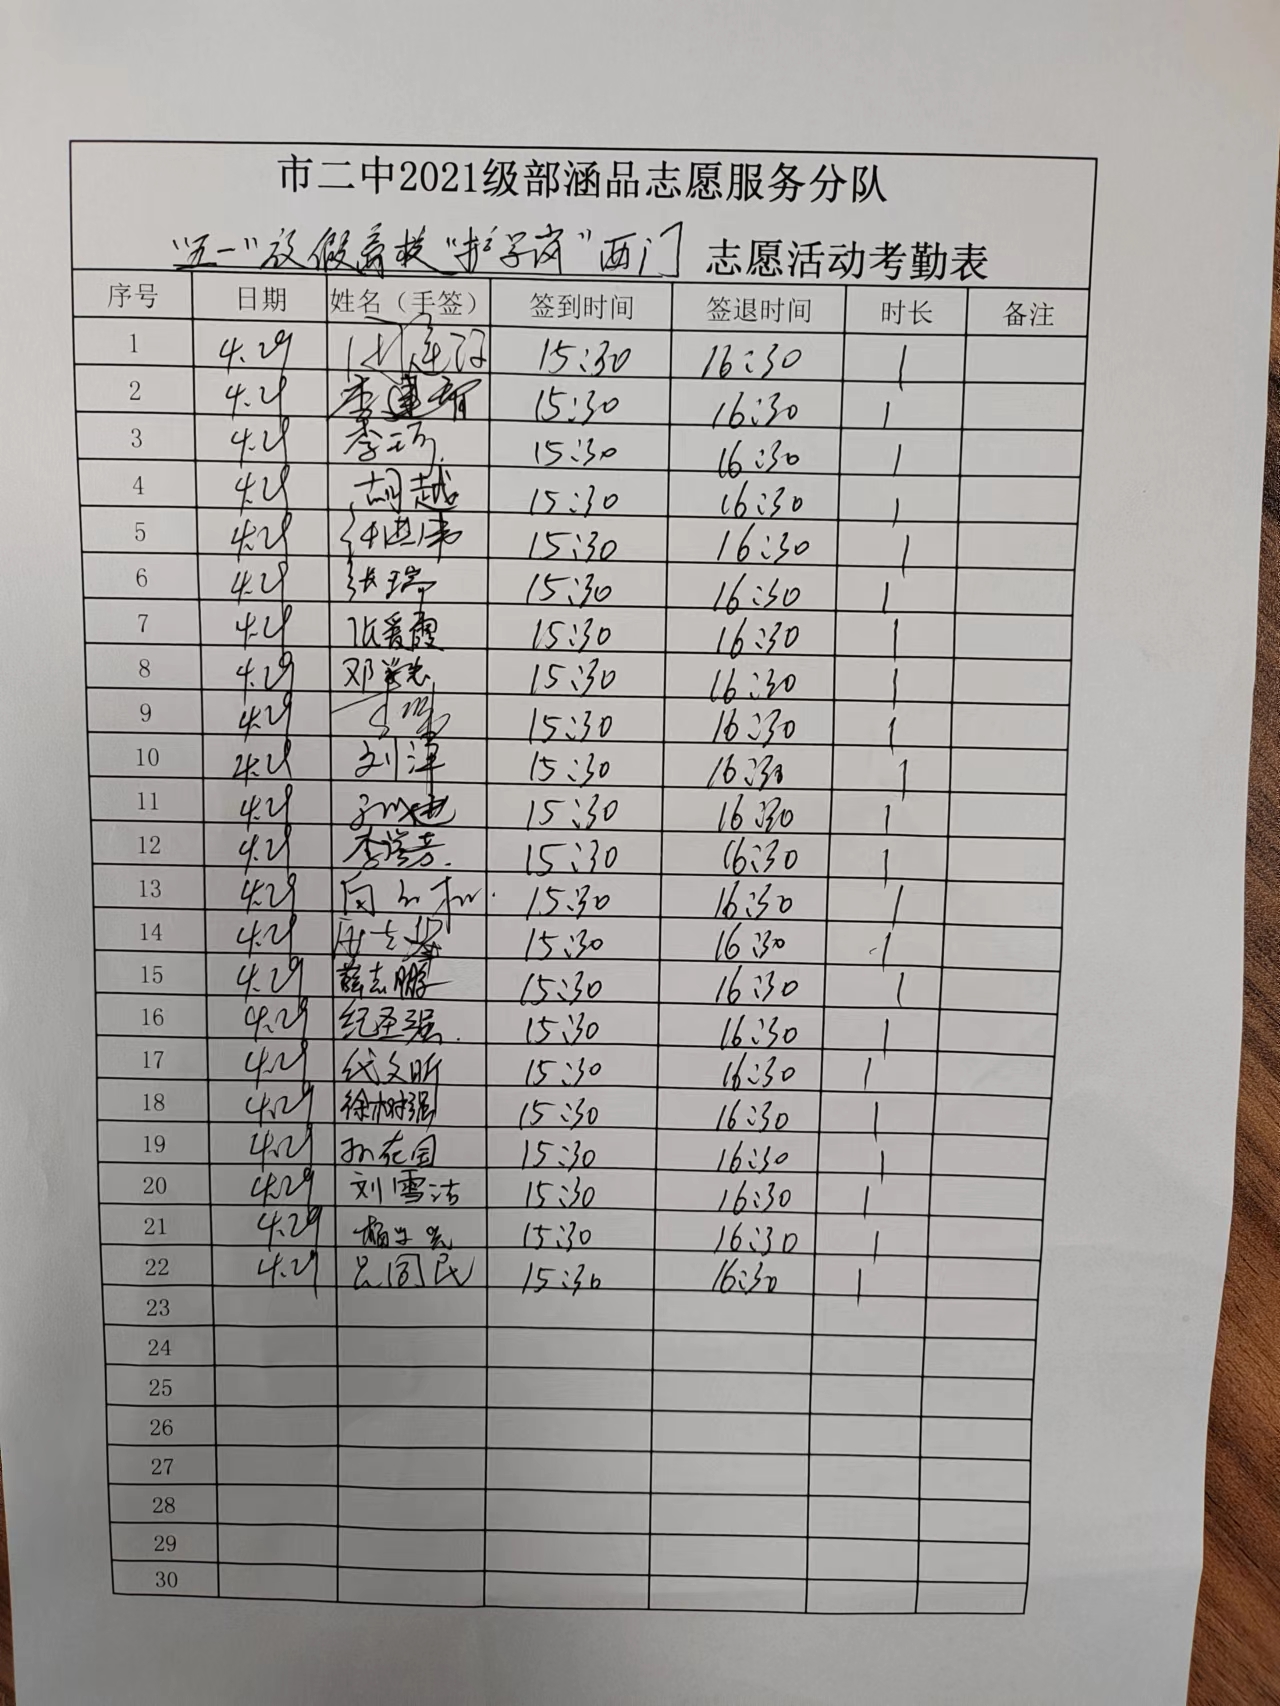 市二中2021级部涵品志愿服务分队
"五一"放假离校"护学岗"西门 志愿活动考勤表
序号 日期 姓名（手签） 签到时间 签退时间 时长 备注
1 4.29 15:30 16:30 1
2 4.29 李建 15:30 16:30 1
3 4.29 李 15:30 16:30 1
4 4.29 胡越 15:30 16:30 1
5 4.29 15:30 16:30 1
6 4.29 张瑞 15:30 16:30 1
7 4.29 张爱霞 15:30 16:30 1
8 4.29 邓 15:30 16:30 1
9 4.29 15:30 16:30 1
10 4.29 刘洋 15:30 16:30 1
11 4.29 15:30 16:30 1
12 4.29 李 15:30 16:30 1
13 4.29 15:30 16:30 1
14 4.29 15:30 16:30 1
15 4.29 薛志鹏 15:30 16:30 1
16 4.29 纪圣强 15:30 16:30 1
17 4.29 文昕 15:30 16:30 1
18 4.29 徐树强 15:30 16:30 1
19 4.29 孙在国 15:30 16:30 1
20 4.29 刘雪洁 15:30 16:30 1
21 4.29 杨 15:30 16:30 1
22 4.29 吕同民 15:30 16:30 1
23
24
25
26
27
28
29
30